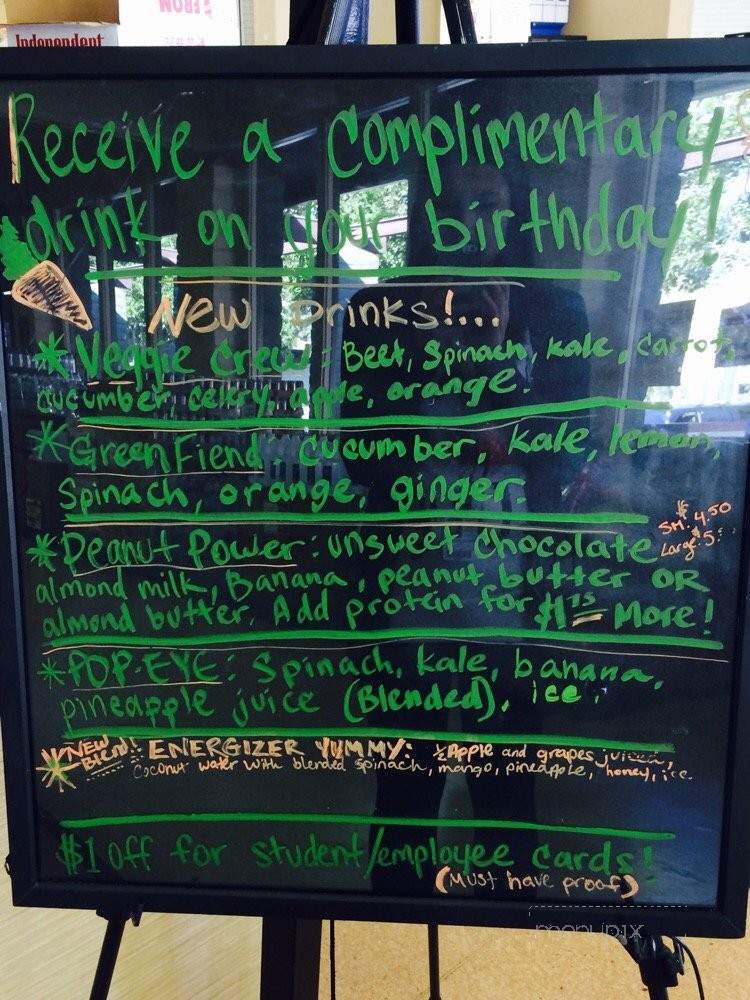 Independent
Receive a Complimentary
drink on your birthday!
New Drinks!...
* Veggie Crew: Beet, Spinach, kale, carrot,
cucumber, celery, apple, orange.
* Green Fiend: cucumber, kale, lemon,
Spinach, orange, ginger.
SM: $4.50
Large: $5.
* Peanut Power: unsweet chocolate
almond milk, Banana, peanut butter OR
almond butter. Add protein for $1.75 More!
* POP-EYE: Spinach, kale, banana,
pineapple juice (Blended), ice.
* NEW Blend!! ENERGIZER YUMMY: ½ Apple and grapes juiced,
Coconut water with blended spinach, mango, pineapple, honey, ice.
$1 off for student/employee cards!
(Must have proof)
menupix